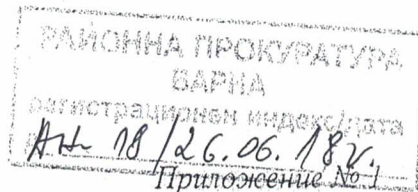 РАЙОННА ПРОКУРАТУРА
ВАРНА
регистрационен индекс/дата
АН- 18 / 26.06.18г.
Приложение № 1